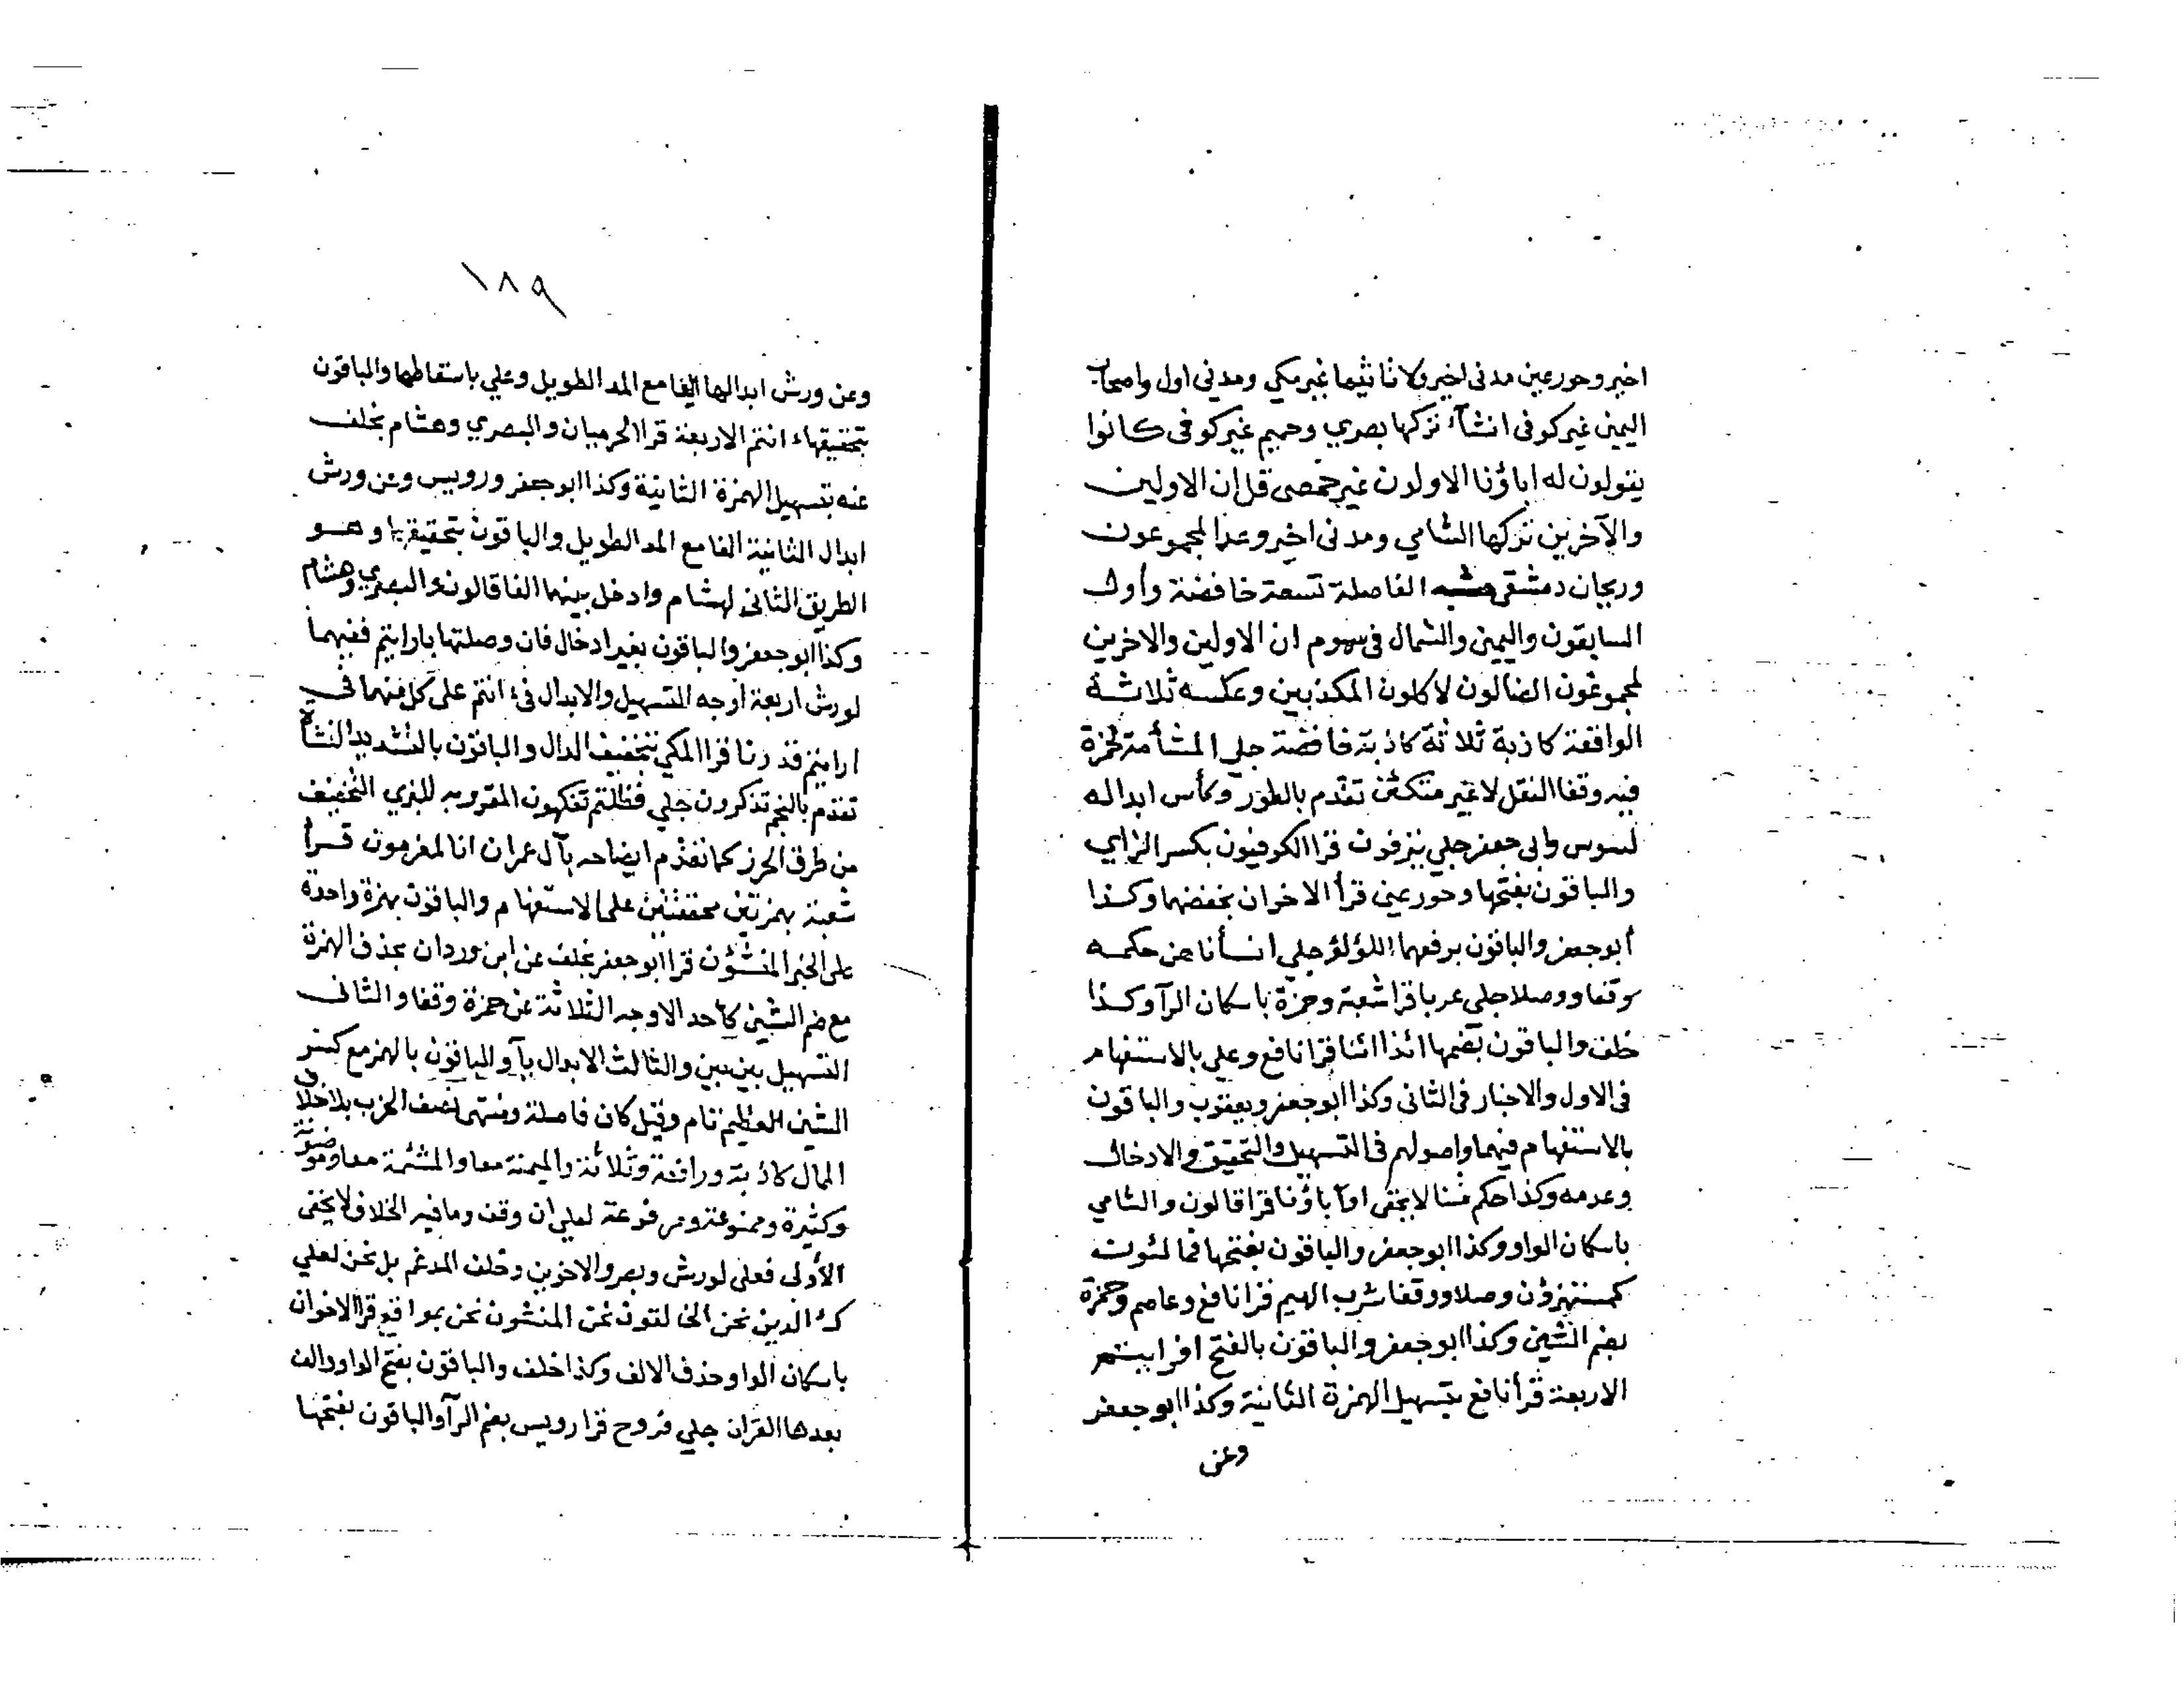 اخير وحور عين مدنى اخير ولا تاثيما غير مكي ومدني اول واصحاب
اليمين غير كوفى انشآء تركها بصري وحميم غير كوفى كانوا
يقولون له اباؤنا الاولون غير حمصى قل ان الاولين
والآخرين تركها الشامي ومدنى اخير وعدا لمجموعون
وريحان دمشقي مشبه الفاصلة تسعة خافضة وأول
السابقون واليمين والشمال فى سموم ان الاولين والاخرين
لمجموعون الضالون لاكلون المكذبين وعكسه ثلاثة
الواقعة كاذبة ثلاثة كاذبة خافضة جلي المشأمة لحمزة
فيه وقفا النقل لا غير متكئين تقدم بالطور وكأس ابداله
لسوس وابى جعفر جلي ينزفون قرا الكوفيون بكسر الزاي
والباقون بفتحها وحور عين قرأ الاخوان بخفضهما وكذا
أبو جعفر والباقون برفعهما اللؤلؤ جلي انشأنا هن حكمه
وقفا ووصلا جلى عربا قرا شعبة وحمزة باسكان الرآ وكذا
خلف والباقون بضمها ائذا ائنا قرا نافع وعلي بالاستفهام
فى الاول والاخبار فى الثانى وكذا ابو جعفر ويعقوب والباقون
بالاستفهام فيهما واصولهم فى التسهيل والتحقيق والادخال
وعدمه وكذا حكم متنا لا يخفى اوآباؤنا قرا قالون والشامي
باسكان الواو وكذا ابو جعفر والباقون بفتحها فمالئون
كمستهزؤن وصلا ووقفا شرب الهيم قرا نافع وعاصم وحمزة
بضم الشين وكذا ابو جعفر والباقون بالفتح افرايتم
الاربعة قرأ نافع بتسهيل الهمزة الثانية وكذا ابو جعفر
وعن
١٨٩
وعن ورش ابدالها الفا مع المد الطويل وعلي باسقاطها والباقون
بتحقيقها ءانتم الاربعة قرا الحرميان والبصري وهشام بخلف
عنه بتسهيل الهمزة الثانية وكذا ابو جعفر ورويس وعن ورش
ابدال الثانية الفا مع المد الطويل والباقون بتحقيقها وهو
الطريق الثانى لهشام وادخل بينهما الفا قالون والبصري وهشام
وكذا ابو جعفر والباقون بغير ادخال فان وصلتها بارايتم ففيهما
لورش اربعة أوجه التسهيل والابدال فى ءانتم على كل منهما فى
ارايتم قدرنا قرا المكي بتخفيف الدال والباقون بالتشديد النشأة
تقدم بالنجم تذكرون جلي فظلتم تفكهون المقروء به للبزي التخفيف
من طرق الحرز كما تقدم ايضاحه بآل عمران انا لمغرمون قرأ
شعبة بهمزتين محققتين على الاستفهام والباقون بهمزة واحدة
على الخبر المنشؤن قرا ابو جعفر بخلف عن ابن وردان بحذف الهمزة
مع ضم الشين كأحد الاوجه الثلاثة عن حمزة وقفا والثانى
التسهيل بين بين والثالث الابدال يآ والباقون بالهمز مع كسر
الشين العظيم تام وقيل كاف فاصلة ومنتهى نصف الحزب بلا خلاف
الممال كاذبة ورافعة وثلاثة والميمنة معا والمشئمة معا وموضونة
وكثيرة وممنوعة ومرفوعة لعلي ان وقف وما فيه الخلاف لا يخفى
الأولى فعلى لورش وبصر والاخوين وخلف المدغم بل نحن لعلي
ك الدين نحن الخالقون نحن المنشون نحن بمواقع قرا الاخوان
باسكان الواو وحذف الالف وكذا خلف والباقون بفتح الواو والف
بعدها القران جلي فروح قرا رويس بضم الرآ والباقون بفتحها